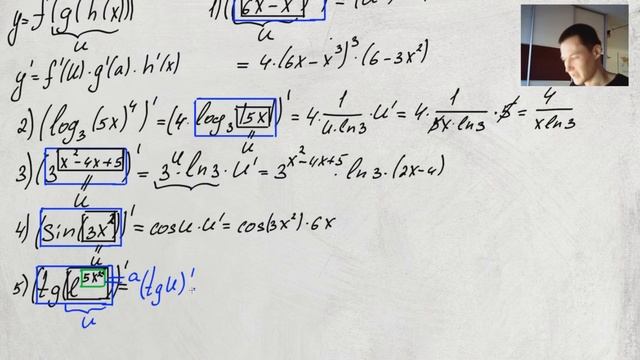 y=f(g(h(x)) 1)(6x-x³)' = (u
u
y'=f'(u)·g'(a)·h'(x) = 4·(6x-x³)³·(6-3x²)
2) (log₃(5x)⁴)' = (4·log₃(5x))' = 4·1/(u·ln3)·u' = 4·1/(5x·ln3)·5 = 4/(xln3)
u
3) (3^(x²-4x+5))' = 3^u·ln3·u' = 3^(x²-4x+5)·ln3·(2x-4)
u
4) (sin(3x²))' = cosu·u' = cos(3x²)·6x
u
5) (tg(e^(5x))' = a (tgu)'·
u